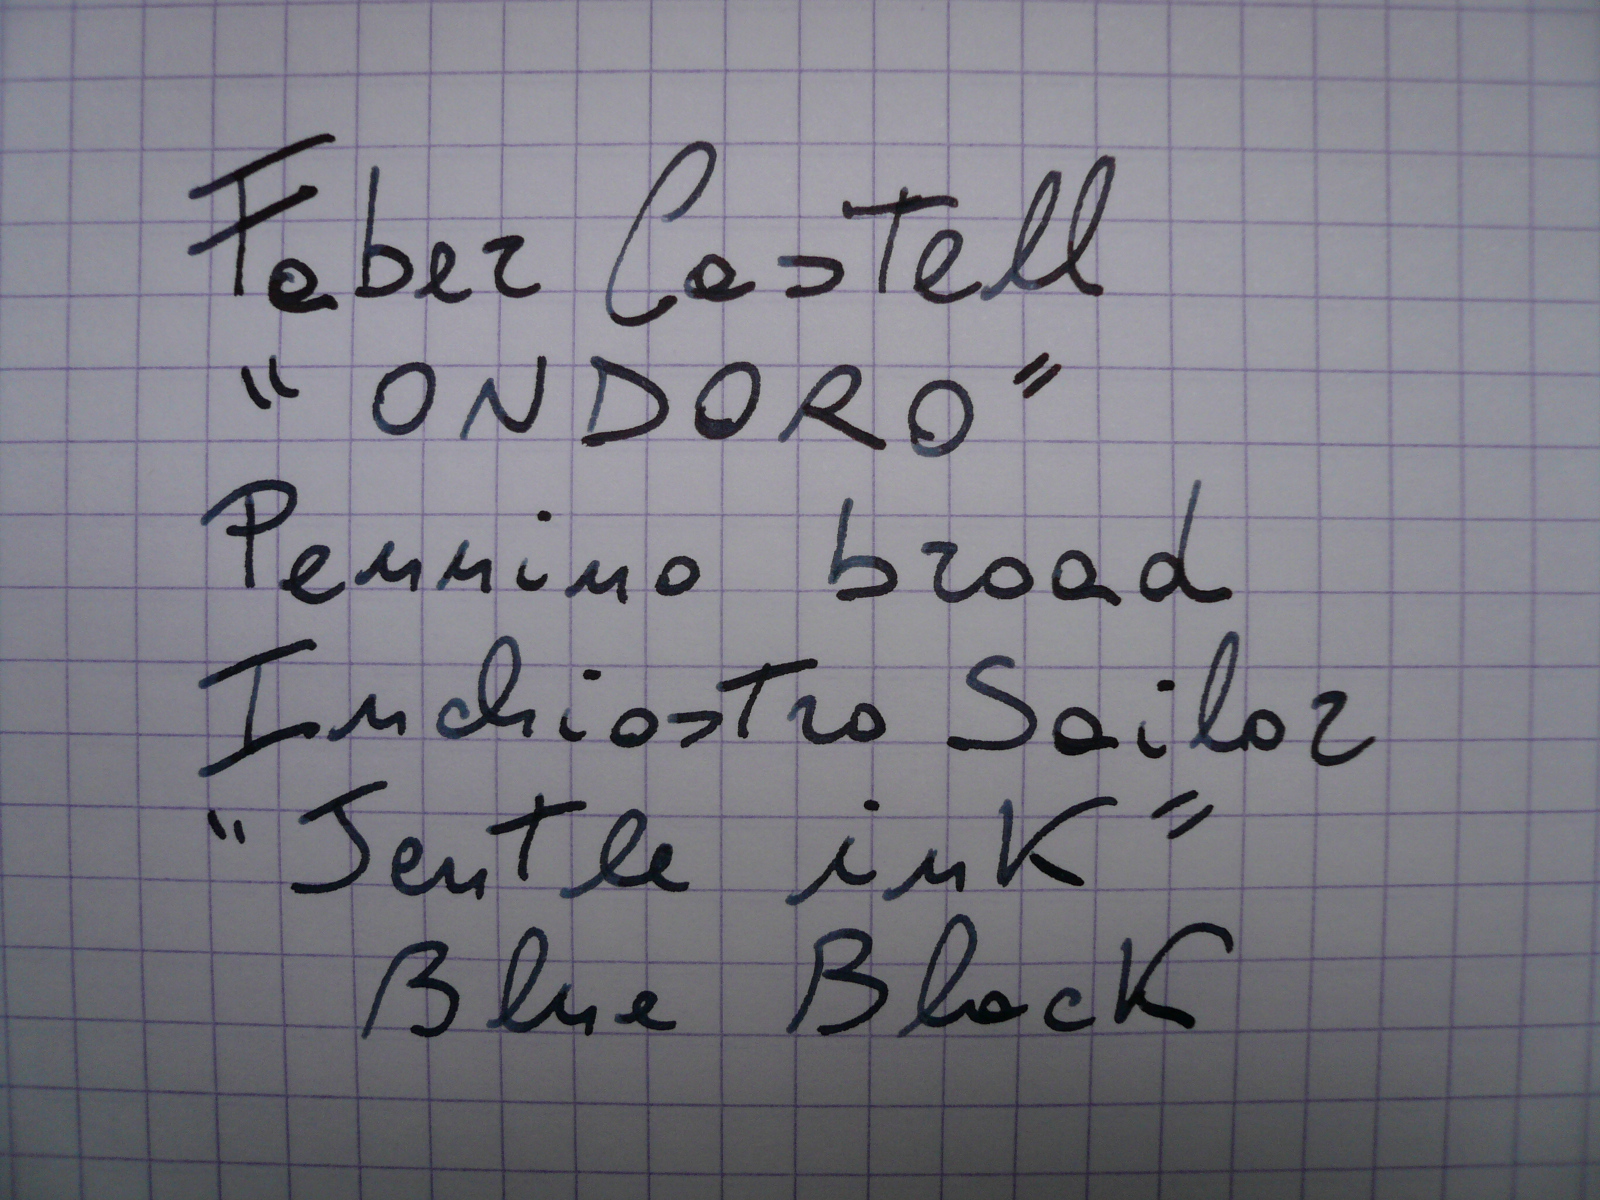 Faber Castell
"ONDORO"
Pennino broad
Inchiostro Sailor
"Jentle ink"
Blue Black